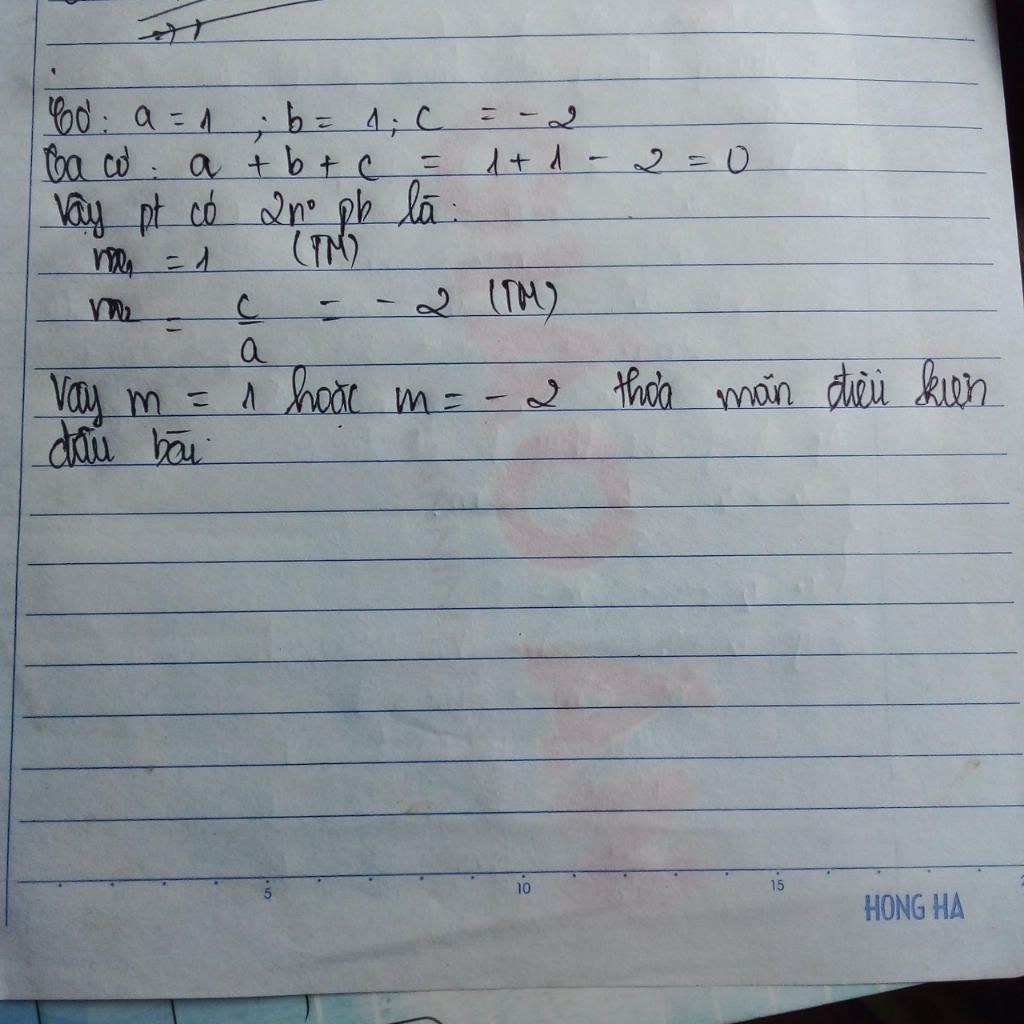 Có: a = 1 ; b = 1 ; c = -2
Ta có: a + b + c = 1 + 1 - 2 = 0
Vậy pt có 2n° pb là:
m₁ = 1 (TM)
m₂ = c/a = -2 (TM)
Vay m = 1 hoặc m = -2 thỏa mãn điều kiện
đầu bài.
5 10 15
HONG HA